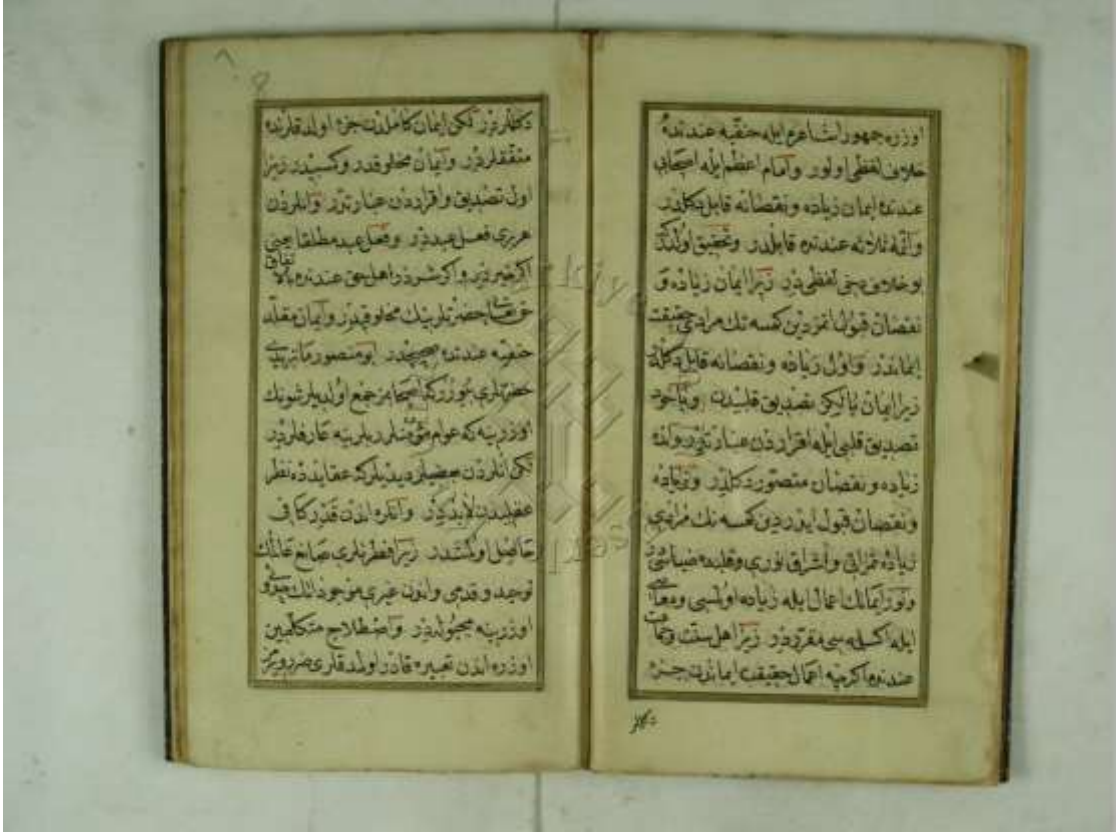 اوزره جمهور اشاعره ايله حنفيه عندنده
خلاف لفظى اولور وامام اعظم ايله اصحابى
عندنده ايمان زياده ونقصانه قابل دكلدر
وائمۀ ثلاثه عندنده قابلدر وتحقيق اولدركه
بو خلاف دخى لفظى در زيرا ايمان زياده و
نقصان قبول ايتمز دين كمسه نك مرادى حقيقت
ايماندر واول زياده ونقصانه قابل دكلدر
زيرا ايمان يا ليكز تصديق قلبيدن وياخود
تصديق قلبى ايله اقراردن عبارتدر واند
زياده ونقصان متصور دكلدر وزياده
ونقصان قبول ايدر دين كمسه نك مرادى
زياده ثمراتى واشراق نورى وقلبده ضياسيدر
ونور ايمانك اعمال ايله زياده اولمسى ومعاصى
ايله اكسلمه سى مقرردر زيرا اهل سنت وجماعت
عندنده اكرچه اعمال حقيقت ايماندن جزء
دكلدر
دكللردر لكن ايمان كاملدن جزء اولدقلرنده
متفقلردر وايمان مخلوقدر وكسبيدر زيرا
اول تصديق واقراردن عبارتدر وانلردن
هربرى فعل عبددر وفعل عبد مطلقا يعنى
اكر خيردر واكر شردر اهل حق عندنده بالاتفاق
حق تعالى حضرتلرينك مخلوقيدر وايمان مقلد
حنفيه عندنده صحيحدر ابو منصور ماتريدى
حضرتلرى بيوررلركه اصحابمز جمع اولديلر شونك
اوزرينه كه عوام مؤمنلر ربلرينه عارفلردر
لكن انلردن بعضيلر ديديلركه عقايدده نظر
عقليدن لابددر وانلره اندن قدر كافى
حاصل اولمشدر زيرا فطرتلرى صانع عالمك
توحيد وقدمى وانون غيرى موجوداتك حدوثى
اوزرينه مجبولدر واصطلاح متكلمين
اوزره اندن تعبيره قادر اولمدقلرى ضرر ويرمز